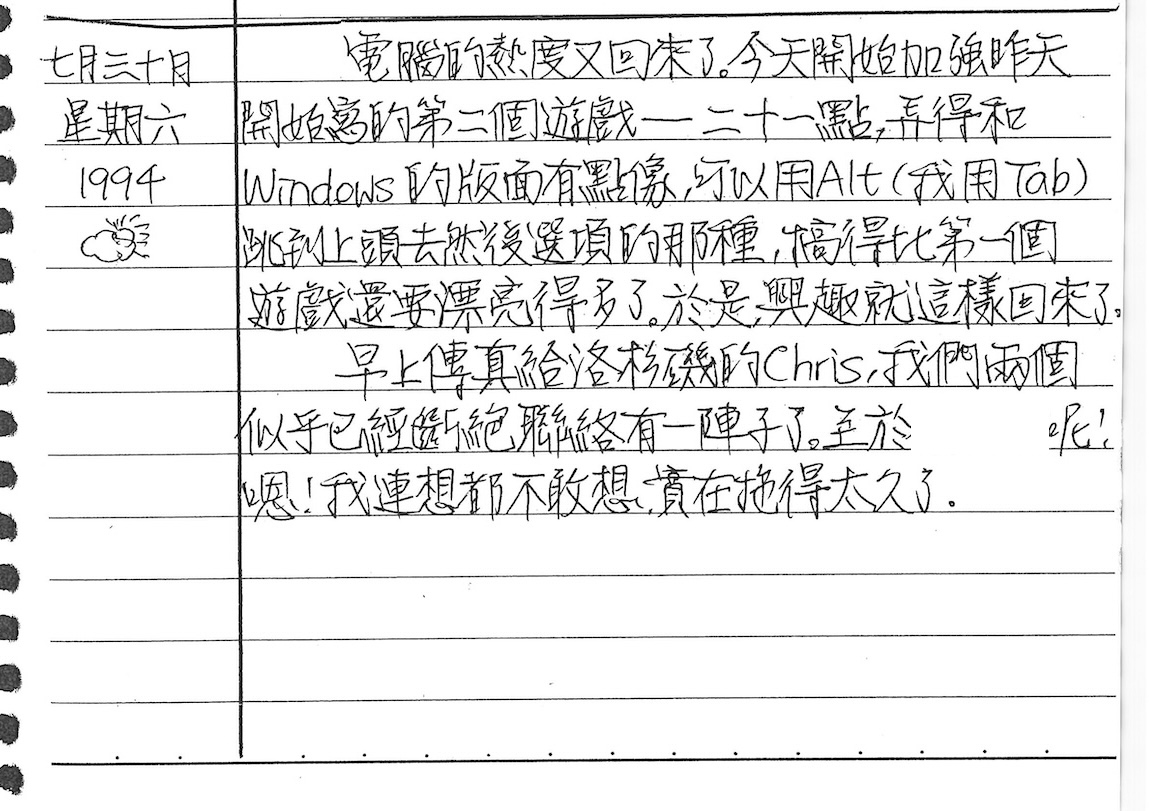 七月三十日
星期六
1994
電腦的熱度又回來了。今天開始加強昨天
開始寫的第二個遊戲—二十一點,弄得和
Windows的版面有點像,可以用Alt(我用Tab)
跳到上頭去然後選項的那種,搞得比第一個
遊戲還要漂亮得多了。於是,興趣就這樣回來了。
早上傳真給洛杉磯的Chris,我們兩個
似乎已經斷絕聯絡有一陣子了。至於 呢!
嗯!我連想都不敢想,實在拖得太久了.